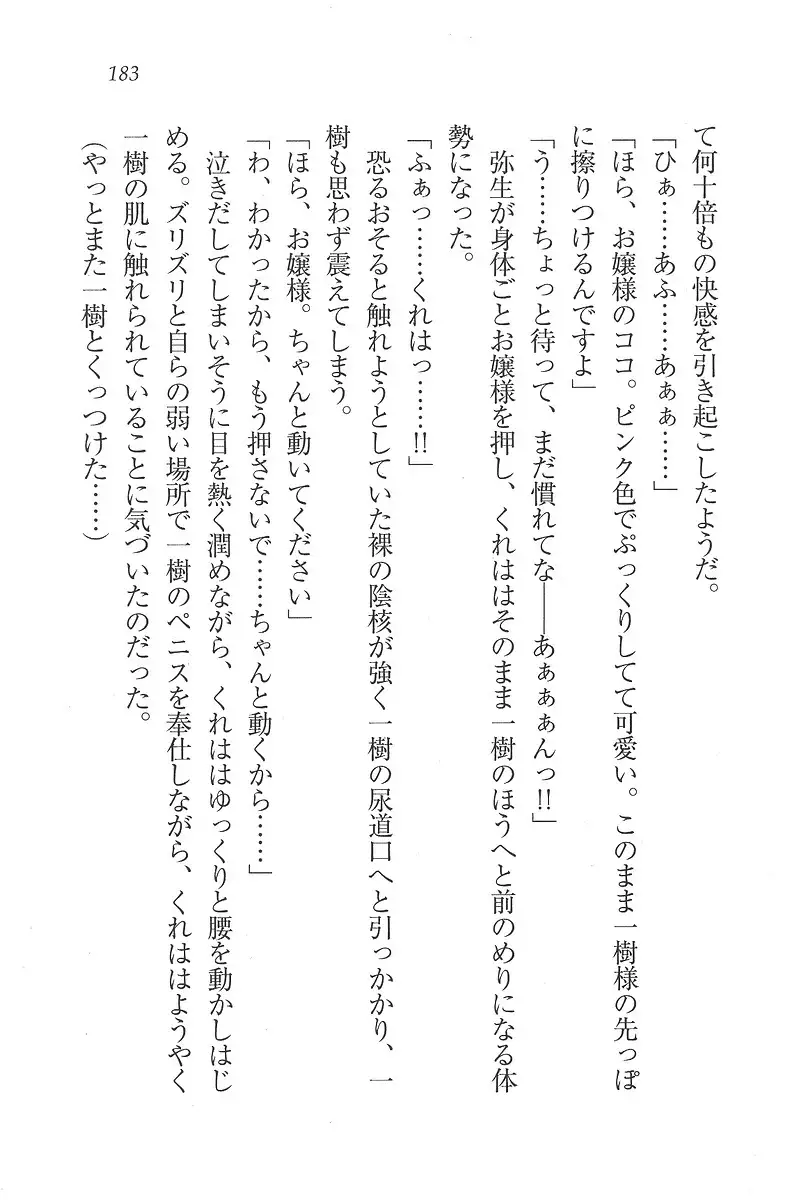 183
て何十倍もの快感を引き起こしたようだ。
「ひぁ……あふ……あぁぁ……」
「ほら、お嬢様のココ。ピンク色でぷっくりしてて可愛い。このまま一樹様の先っぽ
に擦りつけるんですよ」
「う……ちょっと待って、まだ慣れてな――あぁぁぁんっ!!」
弥生が身体ごとお嬢様を押し、くれははそのまま一樹のほうへと前のめりになる体
勢になった。
「ふぁっ……くれはっ……!!」
恐るおそると触れようとしていた裸の陰核が強く一樹の尿道口へと引っかかり、一
樹も思わず震えてしまう。
「ほら、お嬢様。ちゃんと動いてください」
「わ、わかったから、もう押さないで……ちゃんと動くから……」
泣きだしてしまいそうに目を熱く潤めながら、くれははゆっくりと腰を動かしはじ
める。ズリズリと自らの弱い場所で一樹のペニスを奉仕しながら、くれははようやく
一樹の肌に触れられていることに気づいたのだった。
（やっとまた一樹とくっつけた……）